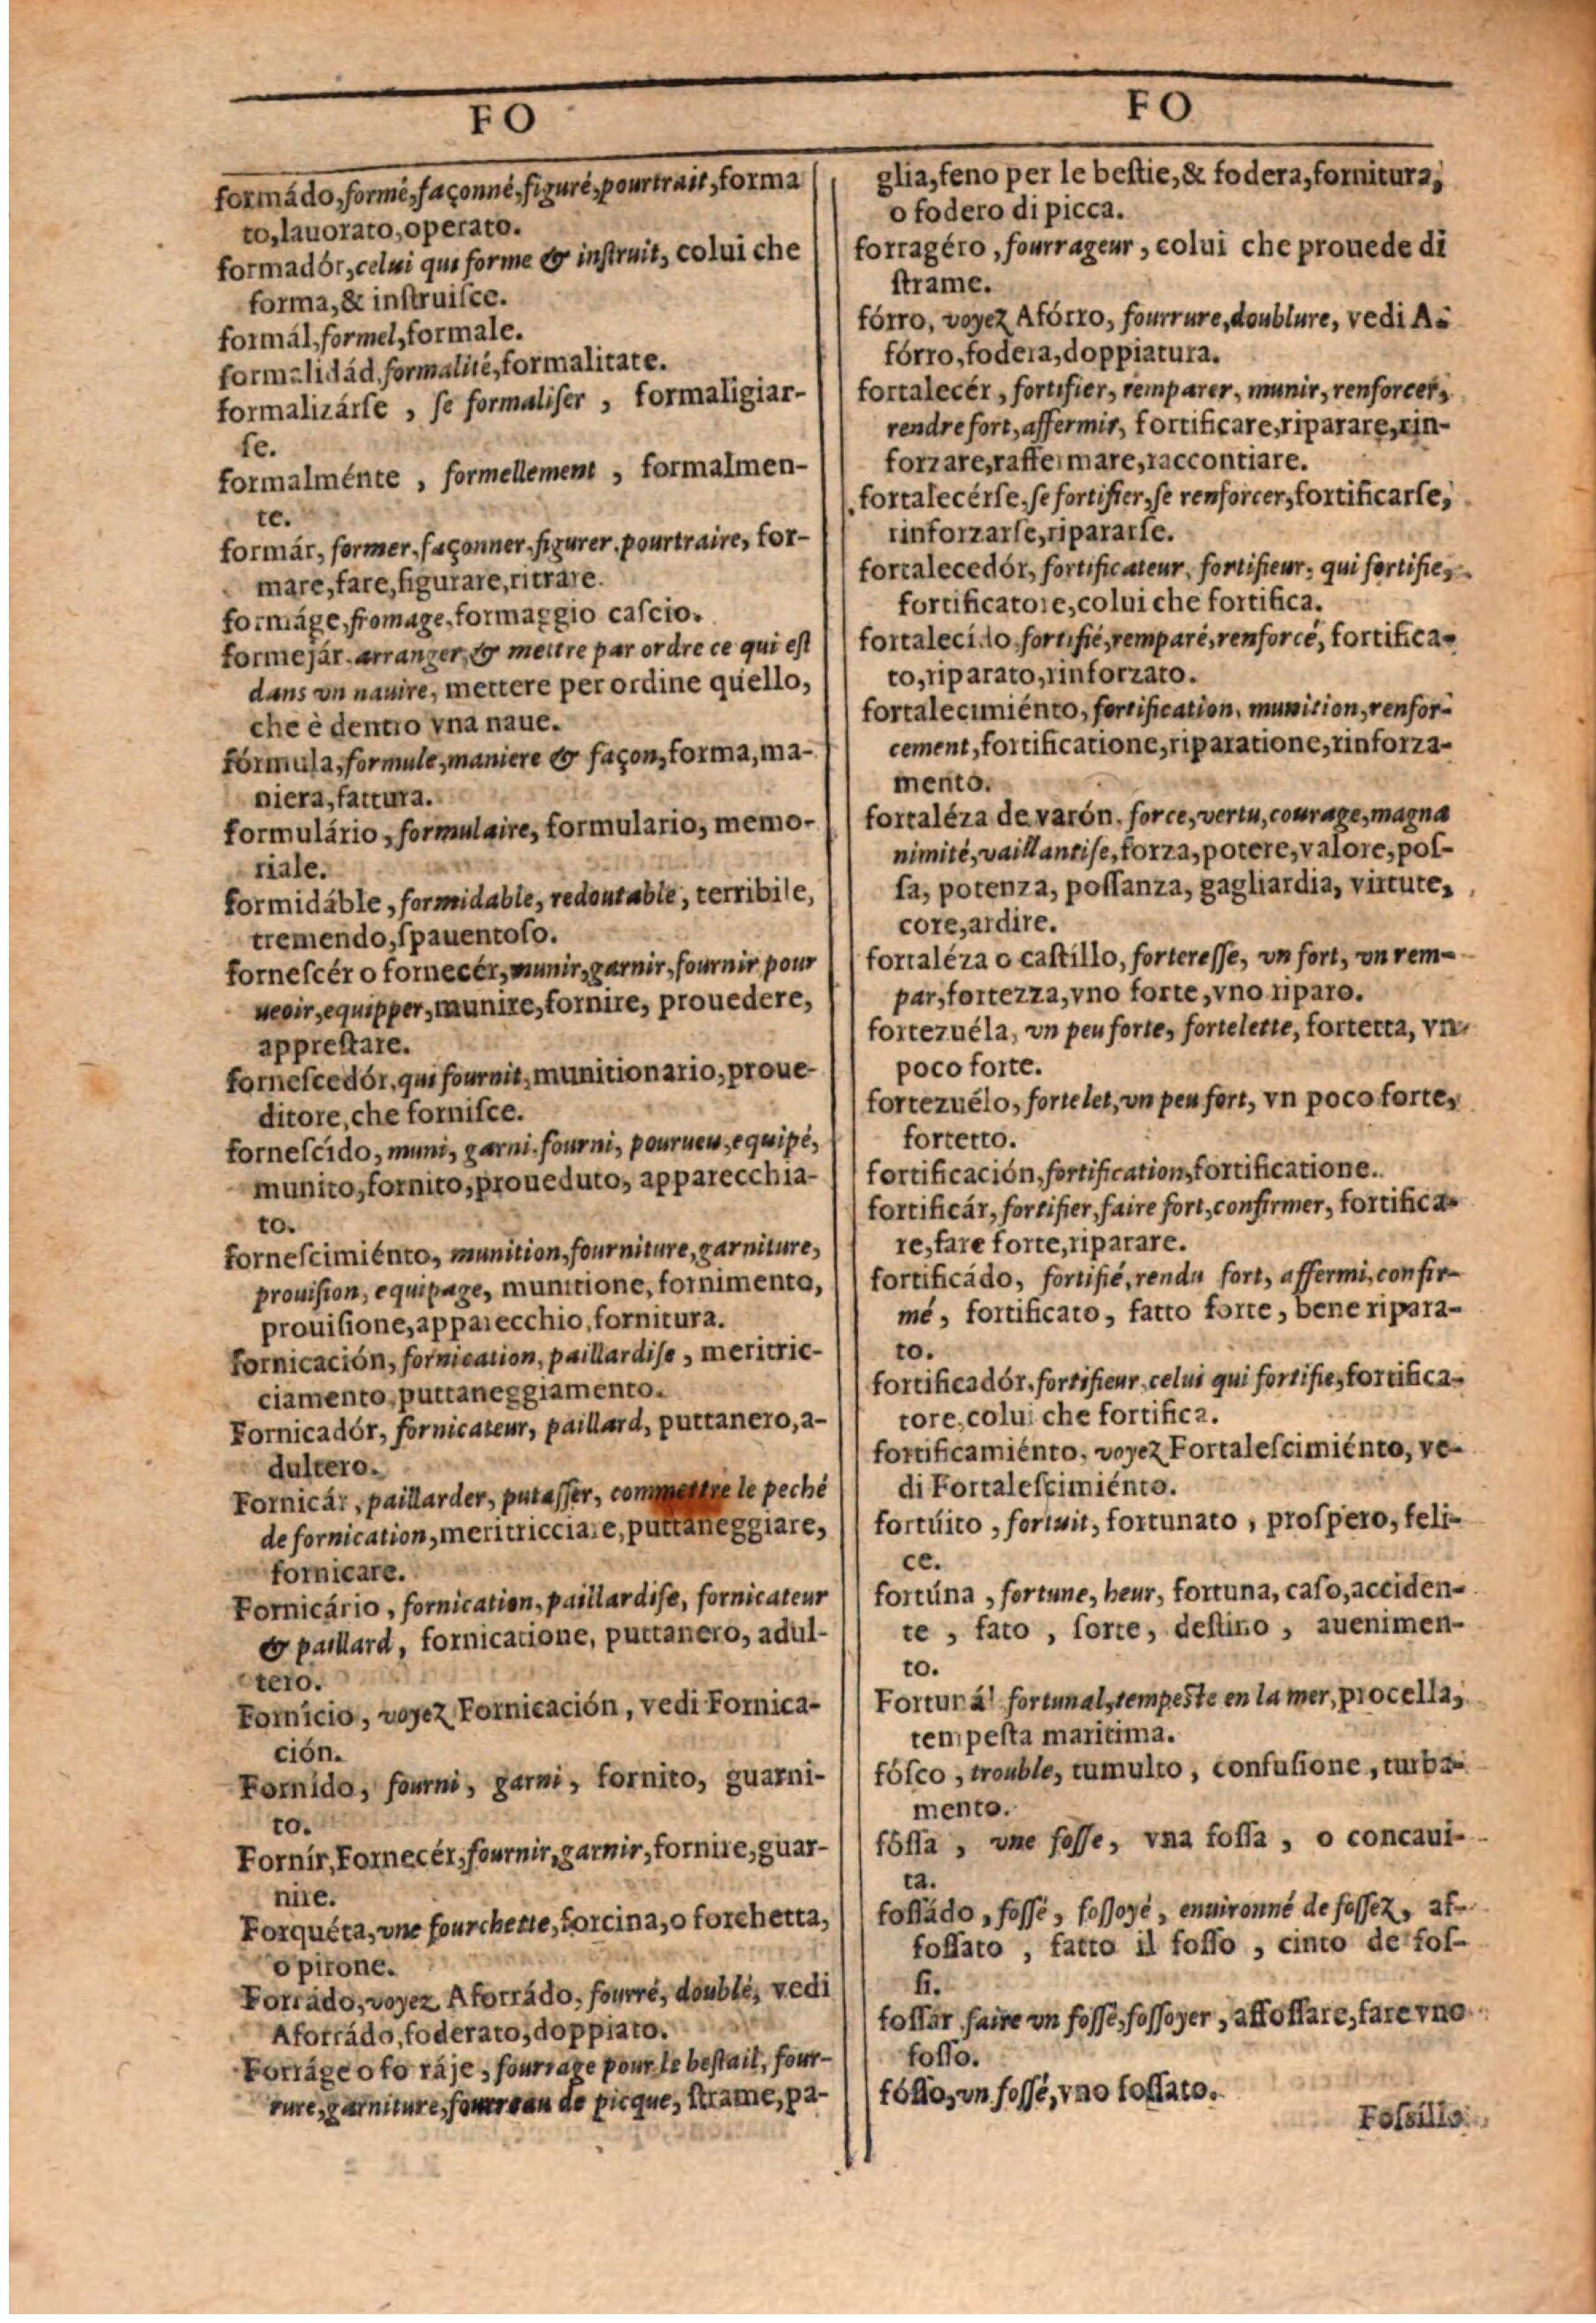 FO
formádo, formé, façonné, figuré, pourtrait, forma
to, lauorato, operato.
formadór, celui qui forme & inſtruit, colui che
forma, & inſtruiſce.
formál, formel, formale.
formalidád, formalité, formalitate.
formalizárſe, ſe formaliſer, formaligiar-
ſe.
formalménte, formellement, formalmen-
te.
formár, former, façonner, figurer, pourtraire, for-
mare, fare, figurare, ritrare.
formáge, fromage, formaggio caſcio.
formejár, arranger, & mettre par ordre ce qui eſt
dans vn nauire, mettere per ordine quello,
che è dentro vna naue.
fórmula, formule, maniere & façon, forma, ma-
niera, fattura.
formulário, formulaire, formulario, memo-
riale.
formidáble, formidable, redoutable, terribile,
tremendo, ſpauentoſo.
forneſcér o fornecér, munir, garnir, fournir pour
ueoir, equipper, munire, fornire, prouedere,
appreſtare.
forneſcedór, qui fournit, munitionario, proue-
ditore, che forniſce.
forneſcído, muni, garni, fourni, pourueu, equipé,
munito, fornito, proueduto, apparecchia-
to.
forneſcimiénto, munition, fourniture, garniture,
prouiſion, equipage, munitione, fornimento,
prouiſione, apparecchio, fornitura.
fornicación, fornication, paillardiſe, meritric-
ciamento, puttaneggiamento.
Fornicadór, fornicateur, paillard, puttanero, a-
dultero.
Fornicár, paillarder, putaſſer, commettre le peché
de fornication, meritricciare, puttaneggiare,
fornicare.
Fornicário, fornication, paillardiſe, fornicateur
& paillard, fornicatione, puttanero, adul-
tero.
Fornício, voyez Fornicación, vedi Fornica-
ción.
Fornído, fourni, garni, fornito, guarni-
to.
Fornír, Fornecér, fournir, garnir, fornire, guar-
nire.
Forquéta, vne fourchette, forcina, o forchetta,
o pirone.
Forrádo, voyez Aforrádo, fourré, doublé, vedi
Aforrádo, foderato, doppiato.
Forráge o fo ráje, fourrage pour le beſtail, four-
rure, garniture, fourreau de picque, ſtrame, pa-
FO
glia, feno per le beſtie, & fodera, fornitura,
o fodero di picca.
forragéro, fourrageur, colui che prouede di
ſtrame.
fórro, voyez Afórro, fourrure, doublure, vedi A-
fórro, fodera, doppiatura.
fortalecér, fortifier, remparer, munir, renforcer,
rendre fort, affermir, fortificare, riparare, rin-
forzare, raffermare, raccontiare.
fortalecérſe, ſe fortifier, ſe renforcer, fortificarſe,
rinforzarſe, ripararſe.
fortalecedór, fortificateur, fortifieur, qui fortifie,
fortificatore, colui che fortifica.
fortalecído, fortifié, remparé, renforcé, fortifica-
to, riparato, rinforzato.
fortalecimiénto, fortification, munition, renfor-
cement, fortificatione, riparatione, rinforza-
mento.
fortaléza de varón, force, vertu, courage, magna
nimité, vaillantiſe, forza, potere, valore, poſ-
ſa, potenza, poſſanza, gagliardia, virtute,
core, ardire.
fortaléza o caſtillo, fortereſſe, vn fort, vn rem-
par, fortezza, vno forte, vno riparo.
fortezuéla, vn peu forte, fortelette, fortetta, vn
poco forte.
fortezuélo, fortelet, vn peu fort, vn poco forte,
fortetto.
fortificación, fortification, fortificatione.
fortificár, fortifier, faire fort, confirmer, fortifica-
re, fare forte, riparare.
fortificádo, fortifié, rendu fort, affermi, confir-
mé, fortificato, fatto forte, bene ripara-
to.
fortificadór, fortifieur, celui qui fortifie, fortifica-
tore, colui che fortifica.
fortificamiénto, voyez Fortaleſcimiénto, ve-
di Fortaleſcimiénto.
fortúito, fortuit, fortunato, proſpero, feli-
ce.
fortúna, fortune, heur, fortuna, caſo, acciden-
te, fato, ſorte, deſtino, auenimen-
to.
Fortunál fortunal, tempeſte en la mer, procella,
tempeſta maritima.
fóſco, trouble, tumulto, confuſione, turba-
mento.
fóſſa, vne foſſe, vna foſſa, o concaui-
ta.
foſſádo, foſſé, foſſoyé, enuironné de foſſez, af-
foſſato, fatto il foſſo, cinto de foſ-
ſi.
foſſár faire vn foſſé, foſſoyer, affoſſare, fare vno
foſſo.
fóſſo, vn foſſé, vno foſſato.
Foſsillo